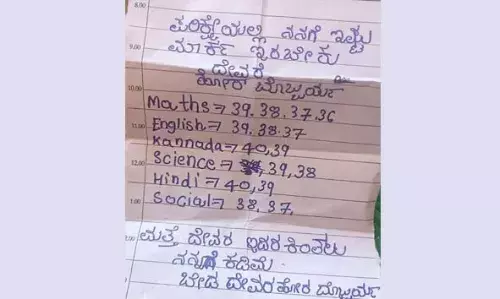 8.00
ಪರಿಕ್ಷೆಯಲ್ಲಿ ನನಗೆ ಇಷ್ಟು
9.00
ಮಾರ್ಕ್ ಇರಬೇಕು
ದೇವರೆ
10.00
ಹೋರ ಬೊಬ್ಬರ್ಯ
Maths=> 39. 38. 37. 36
11.00
English=> 39. 38. 37
Kannada=> 40, 39
12.00
Science => 39, 38
Hindi => 40, 39
1.00
Social=> 38, 37,
2.00
ಮತ್ತೆ ದೇವರ ಇದರ ಕಿಂತಲು
ನನಗೆ ಕಡಿಮೆ
ಬೇಡ ದೇವರ ಹೋರ ಬೊಬ್ಬರ್ಯ